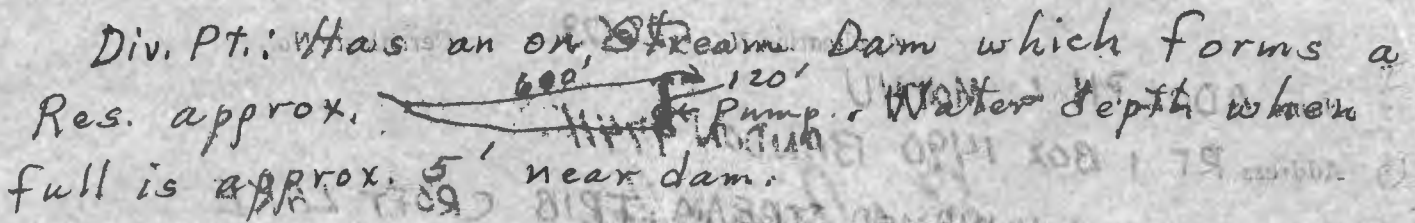 Div. Pt.: Has an on Stream Dam which forms a
Res. approx. 600' 120' Pump. Water depth when
full is approx. 5' near dam.